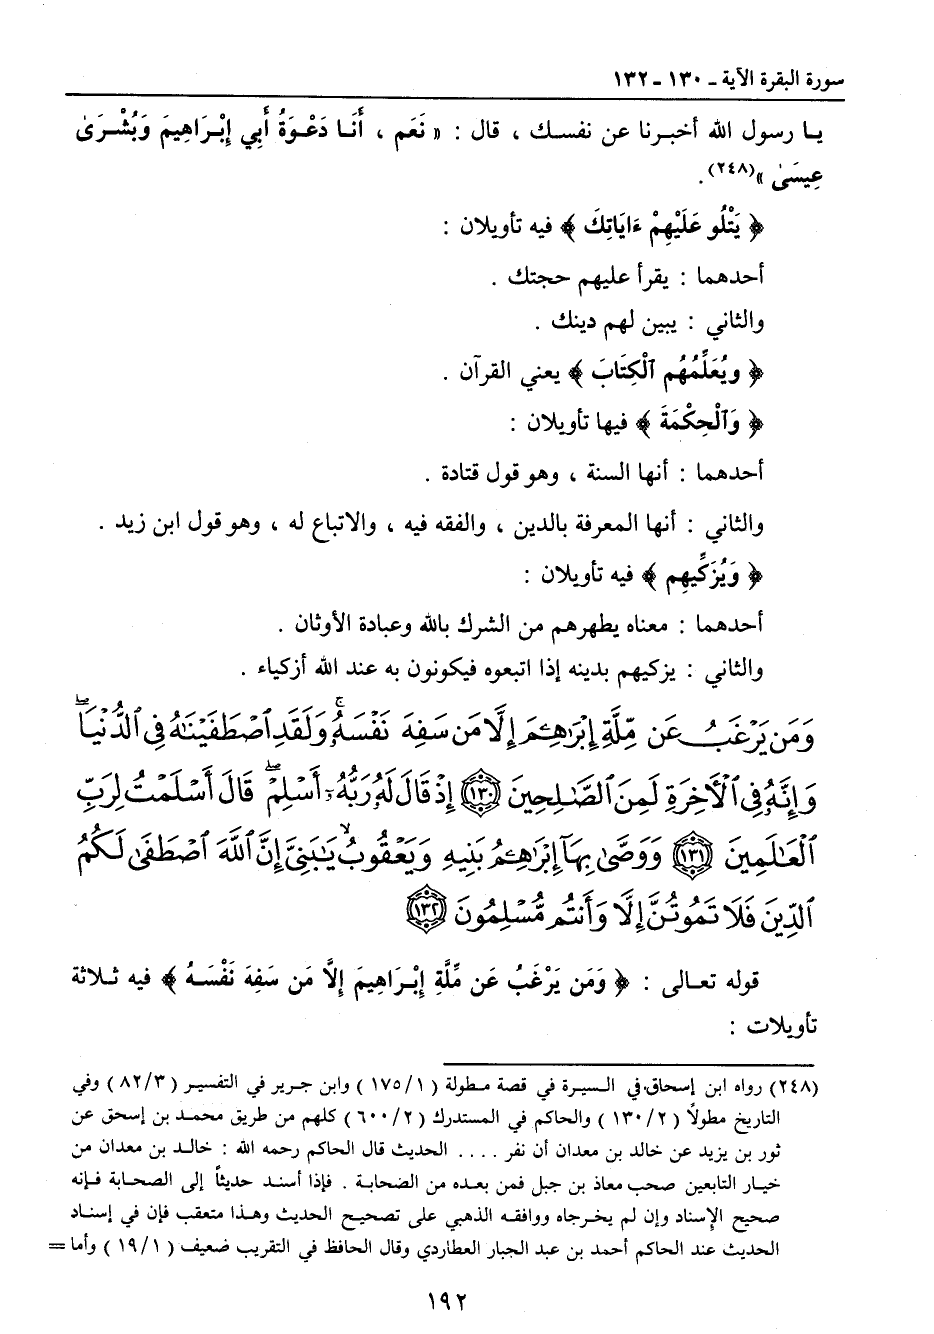 سورة البقرة الآية ـ ١٣٠ ـ ١٣٢
يا رسول الله أخبرنا عن نفسك ، قال : « نَعَم ، أَنَا دَعْوَةُ أَبِي إِبْرَاهِيمَ وَبُشْرَىٰ
عِيسَىٰ »(٢٤٨).
﴿ يَتْلُو عَلَيْهِمْ ءَايَاتِكَ ﴾ فيه تأويلان :
أحدهما : يقرأ عليهم حجتك .
والثاني : يبين لهم دينك .
﴿ ويُعَلِّمُهُم ٱلْكِتَابَ ﴾ يعني القرآن .
﴿ وَٱلْحِكْمَةَ ﴾ فيها تأويلان :
أحدهما : أنها السنة ، وهو قول قتادة .
والثاني : أنها المعرفة بالدين ، والفقه فيه ، والاتباع له ، وهو قول ابن زيد .
﴿ وَيُزَكِّيهِم ﴾ فيه تأويلان :
أحدهما : معناه يطهرهم من الشرك بالله وعبادة الأوثان .
والثاني : يزكيهم بدينه إذا اتبعوه فيكونون به عند الله أزكياء .
وَمَن يَرْغَبُ عَن مِّلَّةِ إِبْرَٰهِـۧمَ إِلَّا مَن سَفِهَ نَفْسَهُۥۚ وَلَقَدِ ٱصْطَفَيْنَٰهُ فِى ٱلدُّنْيَاۖ
وَإِنَّهُۥ فِى ٱلْأَخِرَةِ لَمِنَ ٱلصَّٰلِحِينَ ١٣٠ إِذْ قَالَ لَهُۥ رَبُّهُۥٓ أَسْلِمْۖ قَالَ أَسْلَمْتُ لِرَبِّ
ٱلْعَٰلَمِينَ ١٣١ وَوَصَّىٰ بِهَآ إِبْرَٰهِـۧمُ بَنِيهِ وَيَعْقُوبُ يَٰبَنِىَّ إِنَّ ٱللَّهَ ٱصْطَفَىٰ لَكُمُ
ٱلدِّينَ فَلَا تَمُوتُنَّ إِلَّا وَأَنتُم مُّسْلِمُونَ ١٣٢
قوله تعالى : ﴿ وَمَن يَرْغَبُ عَن مِّلَّةِ إِبْرَاهِيمَ إِلَّا مَن سَفِهَ نَفْسَهُ ﴾ فيه ثلاثة
تأويلات :
(٢٤٨) رواه ابن إسحاق في السيرة في قصة مطولة ( ١/ ١٧٥ ) وابن جرير في التفسير ( ٣/ ٨٢ ) وفي
التاريخ مطولاً ( ٢/ ١٣٠ ) والحاكم في المستدرك ( ٢/ ٦٠٠ ) كلهم من طريق محمد بن إسحق عن
ثور بن يزيد عن خالد بن معدان أن نفر .... الحديث قال الحاكم رحمه الله : خالد بن معدان من
خيار التابعين صحب معاذ بن جبل فمن بعده من الصحابة . فإذا أسند حديثاً إلى الصحابة فإنه
صحيح الإسناد وإن لم يخرجاه ووافقه الذهبي على تصحيح الحديث وهذا متعقب فإن في إسناد
الحديث عند الحاكم أحمد بن عبد الجبار العطاردي وقال الحافظ في التقريب ضعيف ( ١/ ١٩ ) وأما =
١٩٢